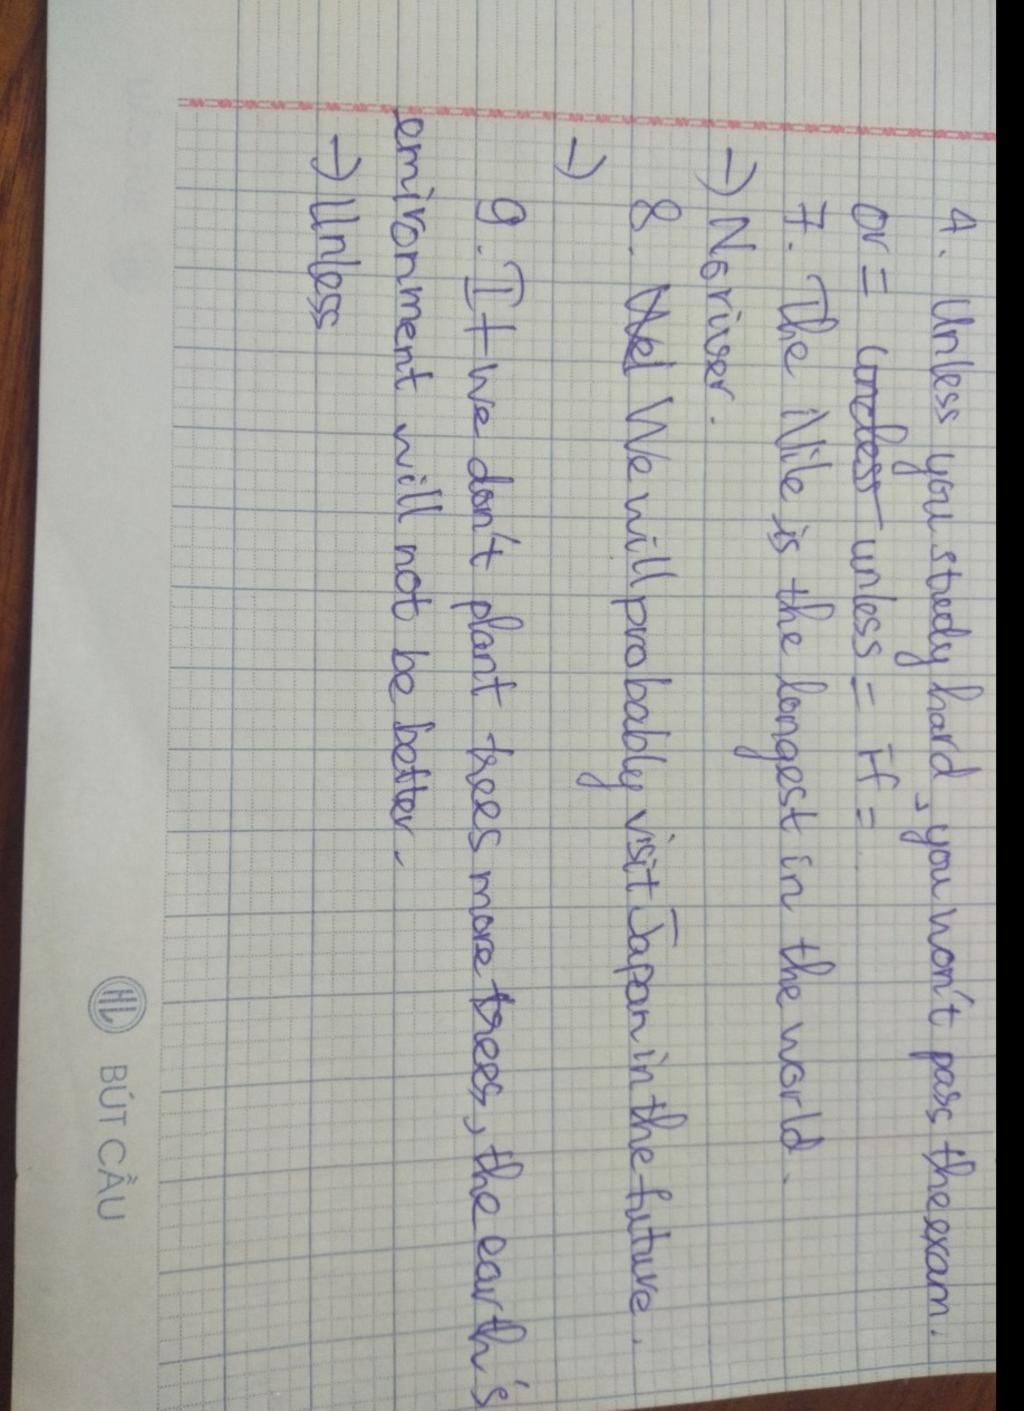 4. Unless you study hard, you won't pass the exam.
or = unless = if =
7. The Nile is the longest in the world.
→ No river.
8. We will probably visit Japan in the future.
→
9. If we don't plant trees more trees, the earth's
emironment will not be better.
→ Unless
HL BÚT CẦU